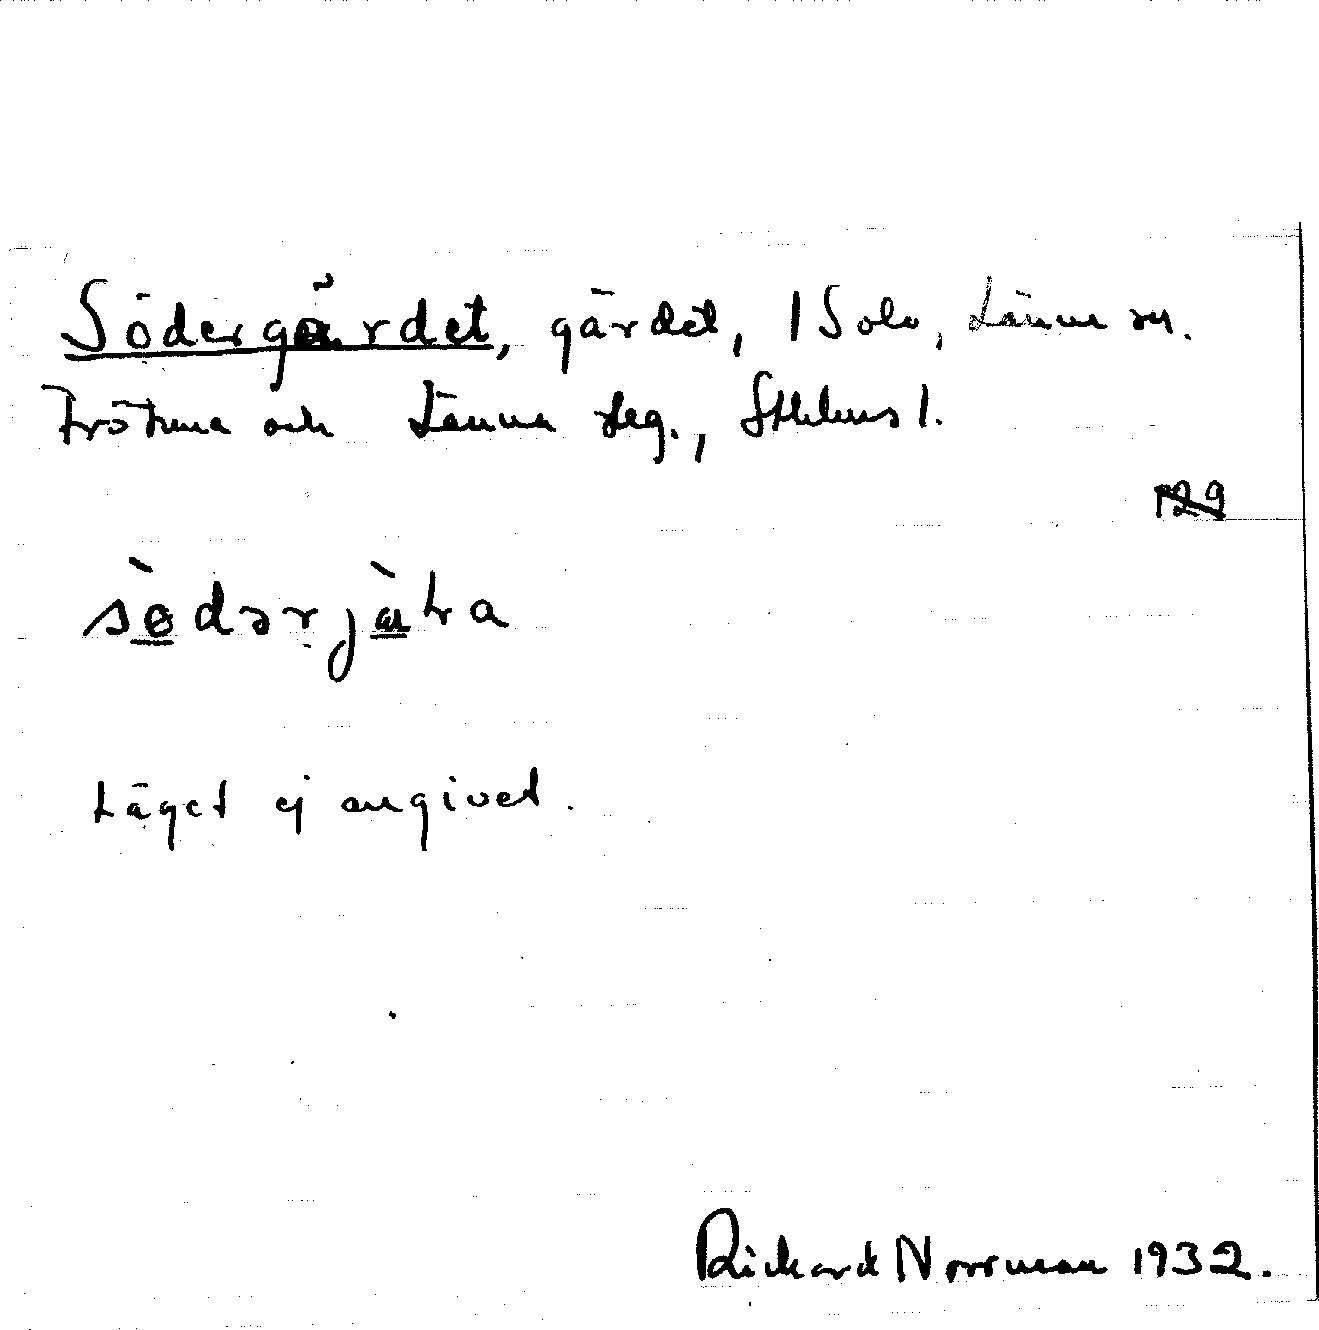 Södergärdet, gärdet, 1 Solö, Länna sn.
Frötuna och Länna slg., Sthlms l.
129
sø̀dərjæ̀ɭa
Läget ej angivet.
Rickard Norrman 1932.